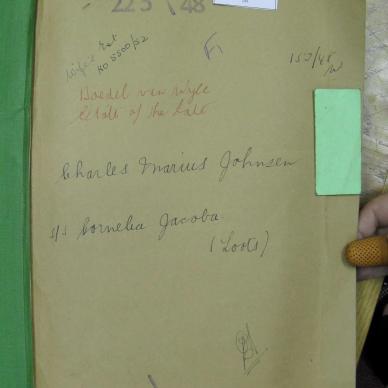 223 \ 48
Wife's Est
No 5500/52
F1
152/48
Boedel van wyle
Estate of the Late
Charles Marius Johnsen
s/s Cornelia Jacoba
(Loots)